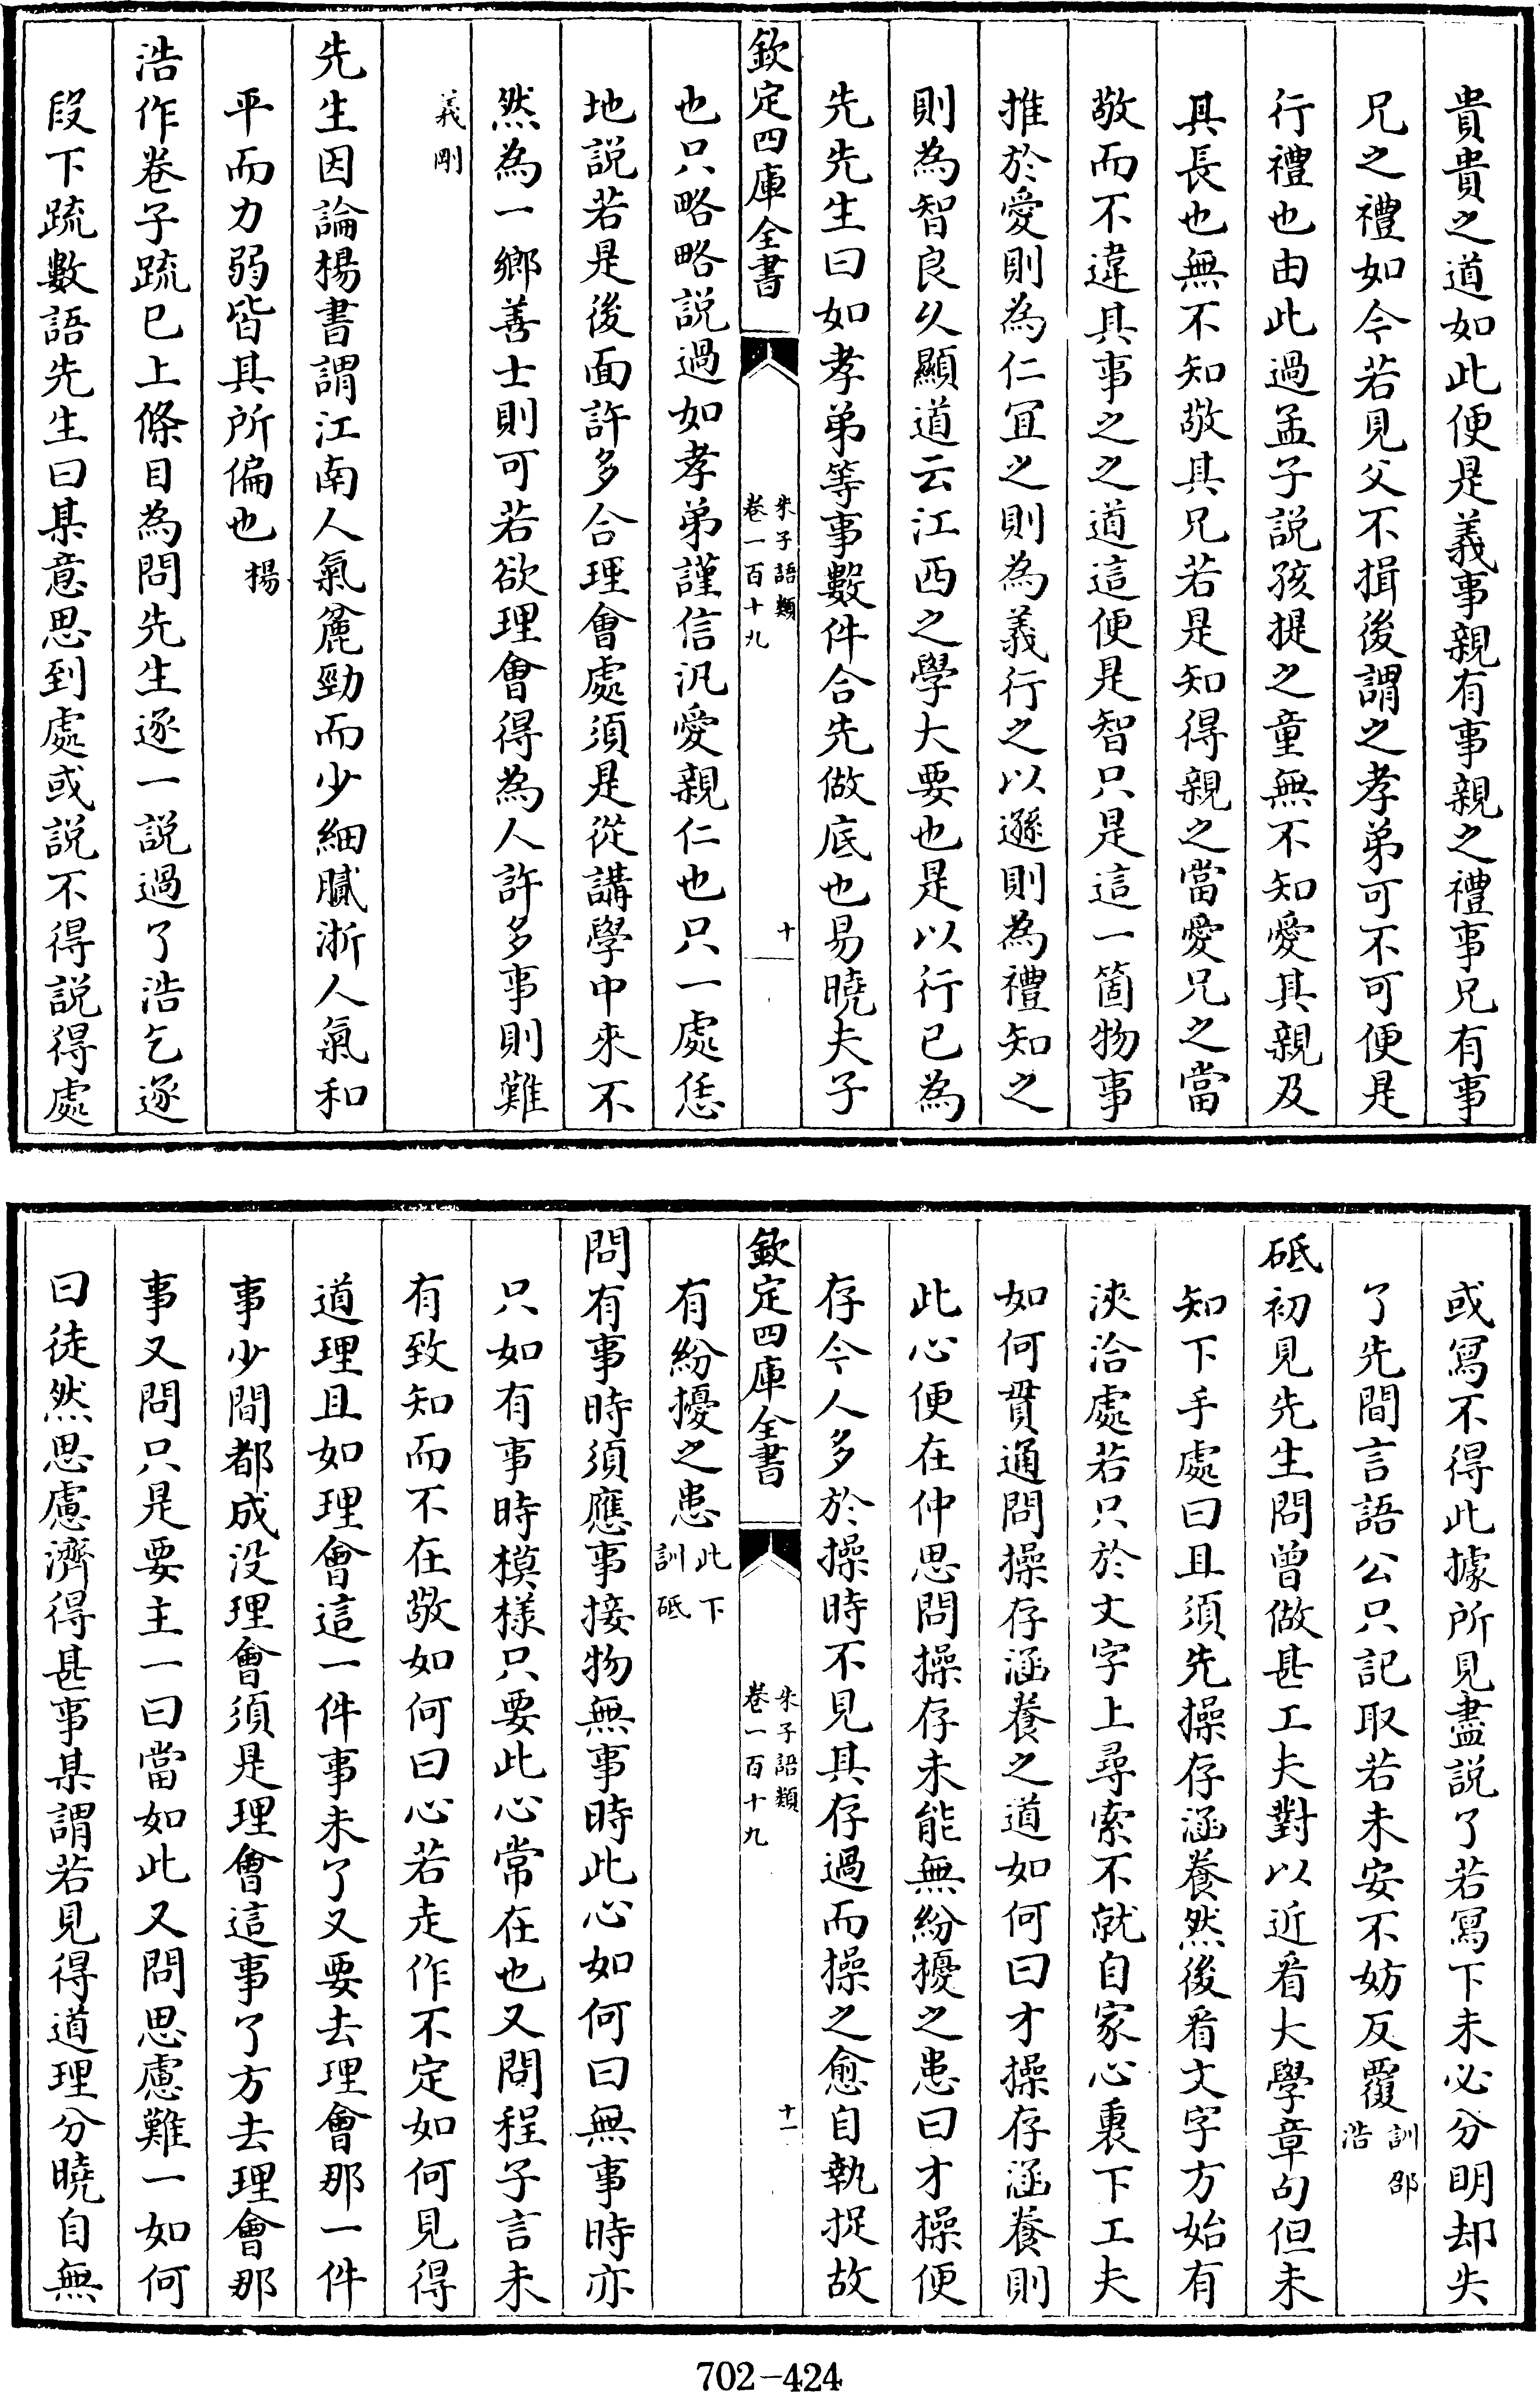 貴貴之道如此便是義事親有事親之禮事兄有事
兄之禮如今若見父不揖後謂之孝弟可不可便是
行禮也由此過孟子説孩提之童無不知愛其親及
其長也無不知敬其兄若是知得親之當愛兄之當
敬而不違其事之之道這便是智只是這一箇物事
推於愛則為仁宜之則為義行之以遜則為禮知之
則為智良久顯道云江西之學大要也是以行已為
先先生曰如孝弟等事數件合先做底也易曉夫子
欽定四庫全書
朱子語類
卷一百十九
十
也只略略説過如孝弟謹信汎愛親仁也只一處恁
地説若是後面許多合理會處須是從講學中來不
然為一鄉善士則可若欲理會得為人許多事則難
義剛
先生因論楊書謂江南人氣麄勁而少細膩浙人氣和
平而力弱皆其所偏也揚
浩作卷子疏已上條目為問先生逐一説過了浩乞逐
段下疏數語先生曰某意思到處或説不得説得處
或寫不得此據所見盡説了若寫下未必分明却失
了先間言語公只記取若未安不妨反覆訓邵
浩
砥初見先生問曾做甚工夫對以近看大學章句但未
知下手處曰且須先操存涵養然後看文字方始有
浹洽處若只於文字上尋索不就自家心裏下工夫
如何貫通問操存涵養之道如何曰才操存涵養則
此心便在仲思問操存未能無紛擾之患曰才操便
存今人多於操時不見其存過而操之愈自執捉故
欽定四庫全書
朱子語類
卷一百十九
十一
有紛擾之患此下
訓砥
問有事時須應事接物無事時此心如何曰無事時亦
只如有事時模樣只要此心常在也又問程子言未
有致知而不在敬如何曰心若走作不定如何見得
道理且如理會這一件事未了又要去理會那一件
事少間都成没理會須是理會這事了方去理會那
事又問只是要主一曰當如此又問思慮難一如何
曰徒然思慮濟得甚事某謂若見得道理分曉自無
702-424